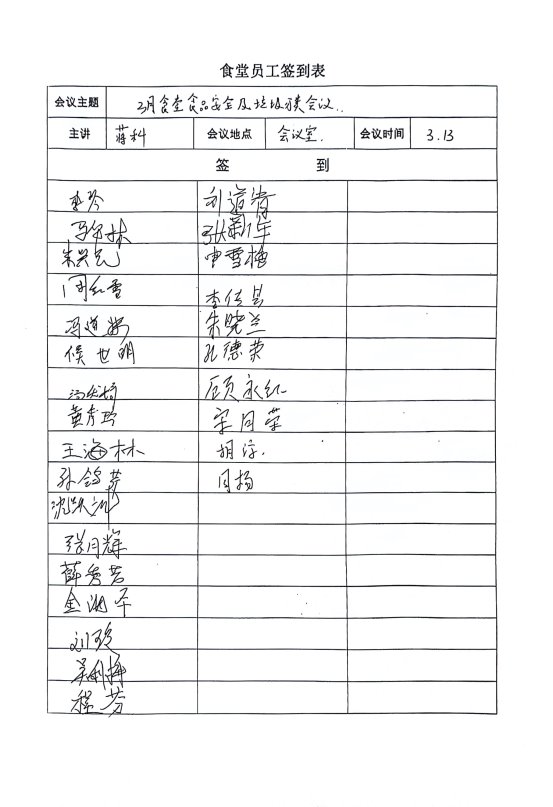 食堂员工签到表
会议主题 3月食堂食品安全及垃圾分类会议.
主讲 蒋科 会议地点 会议室. 会议时间 3.13
签 到
李琴 刘道青
林 张新军
朱兴元 申雪梅
闫红雪 李传芸
冯道 朱晓兰
侯世明 孔德荣
顾永红
黄秀玲 宋月荣
王海林 胡萍.
孙鸽芳 闫扬
沈
张月辉
薛秀芳
金湘平
刘玲
吴利梅
程芬